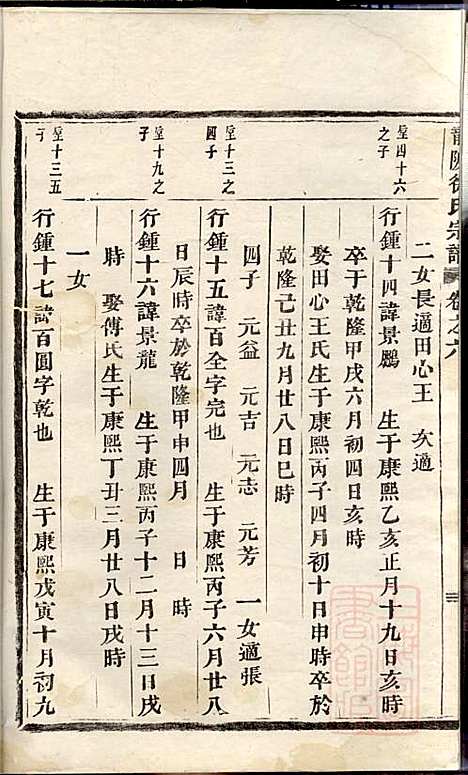 龍陂徐氏宗譜 卷之六
二女長適田心王 次適
堂四十六之子
行鍾十四諱景鵬 生于康熙乙亥正月十九日亥時
卒于乾隆甲戌六月初四日亥時
娶田心王氏生于康熙丙子四月初十日申時卒於
乾隆己丑九月廿八日巳時
四子 元益 元吉 元志 元芳 一女適張
堂十三之四子
行鍾十五諱百全字完也 生于康熙丙子六月廿八
日辰時卒於乾隆甲申四月 日 時
堂十九之子
行鍾十六諱景龍 生于康熙丙子十二月十三日戌
時 娶傅氏生于康熙丁丑三月廿八日戌時
一女
堂十三五子
行鍾十七諱百圓字乾也 生于康熙戊寅十月初九